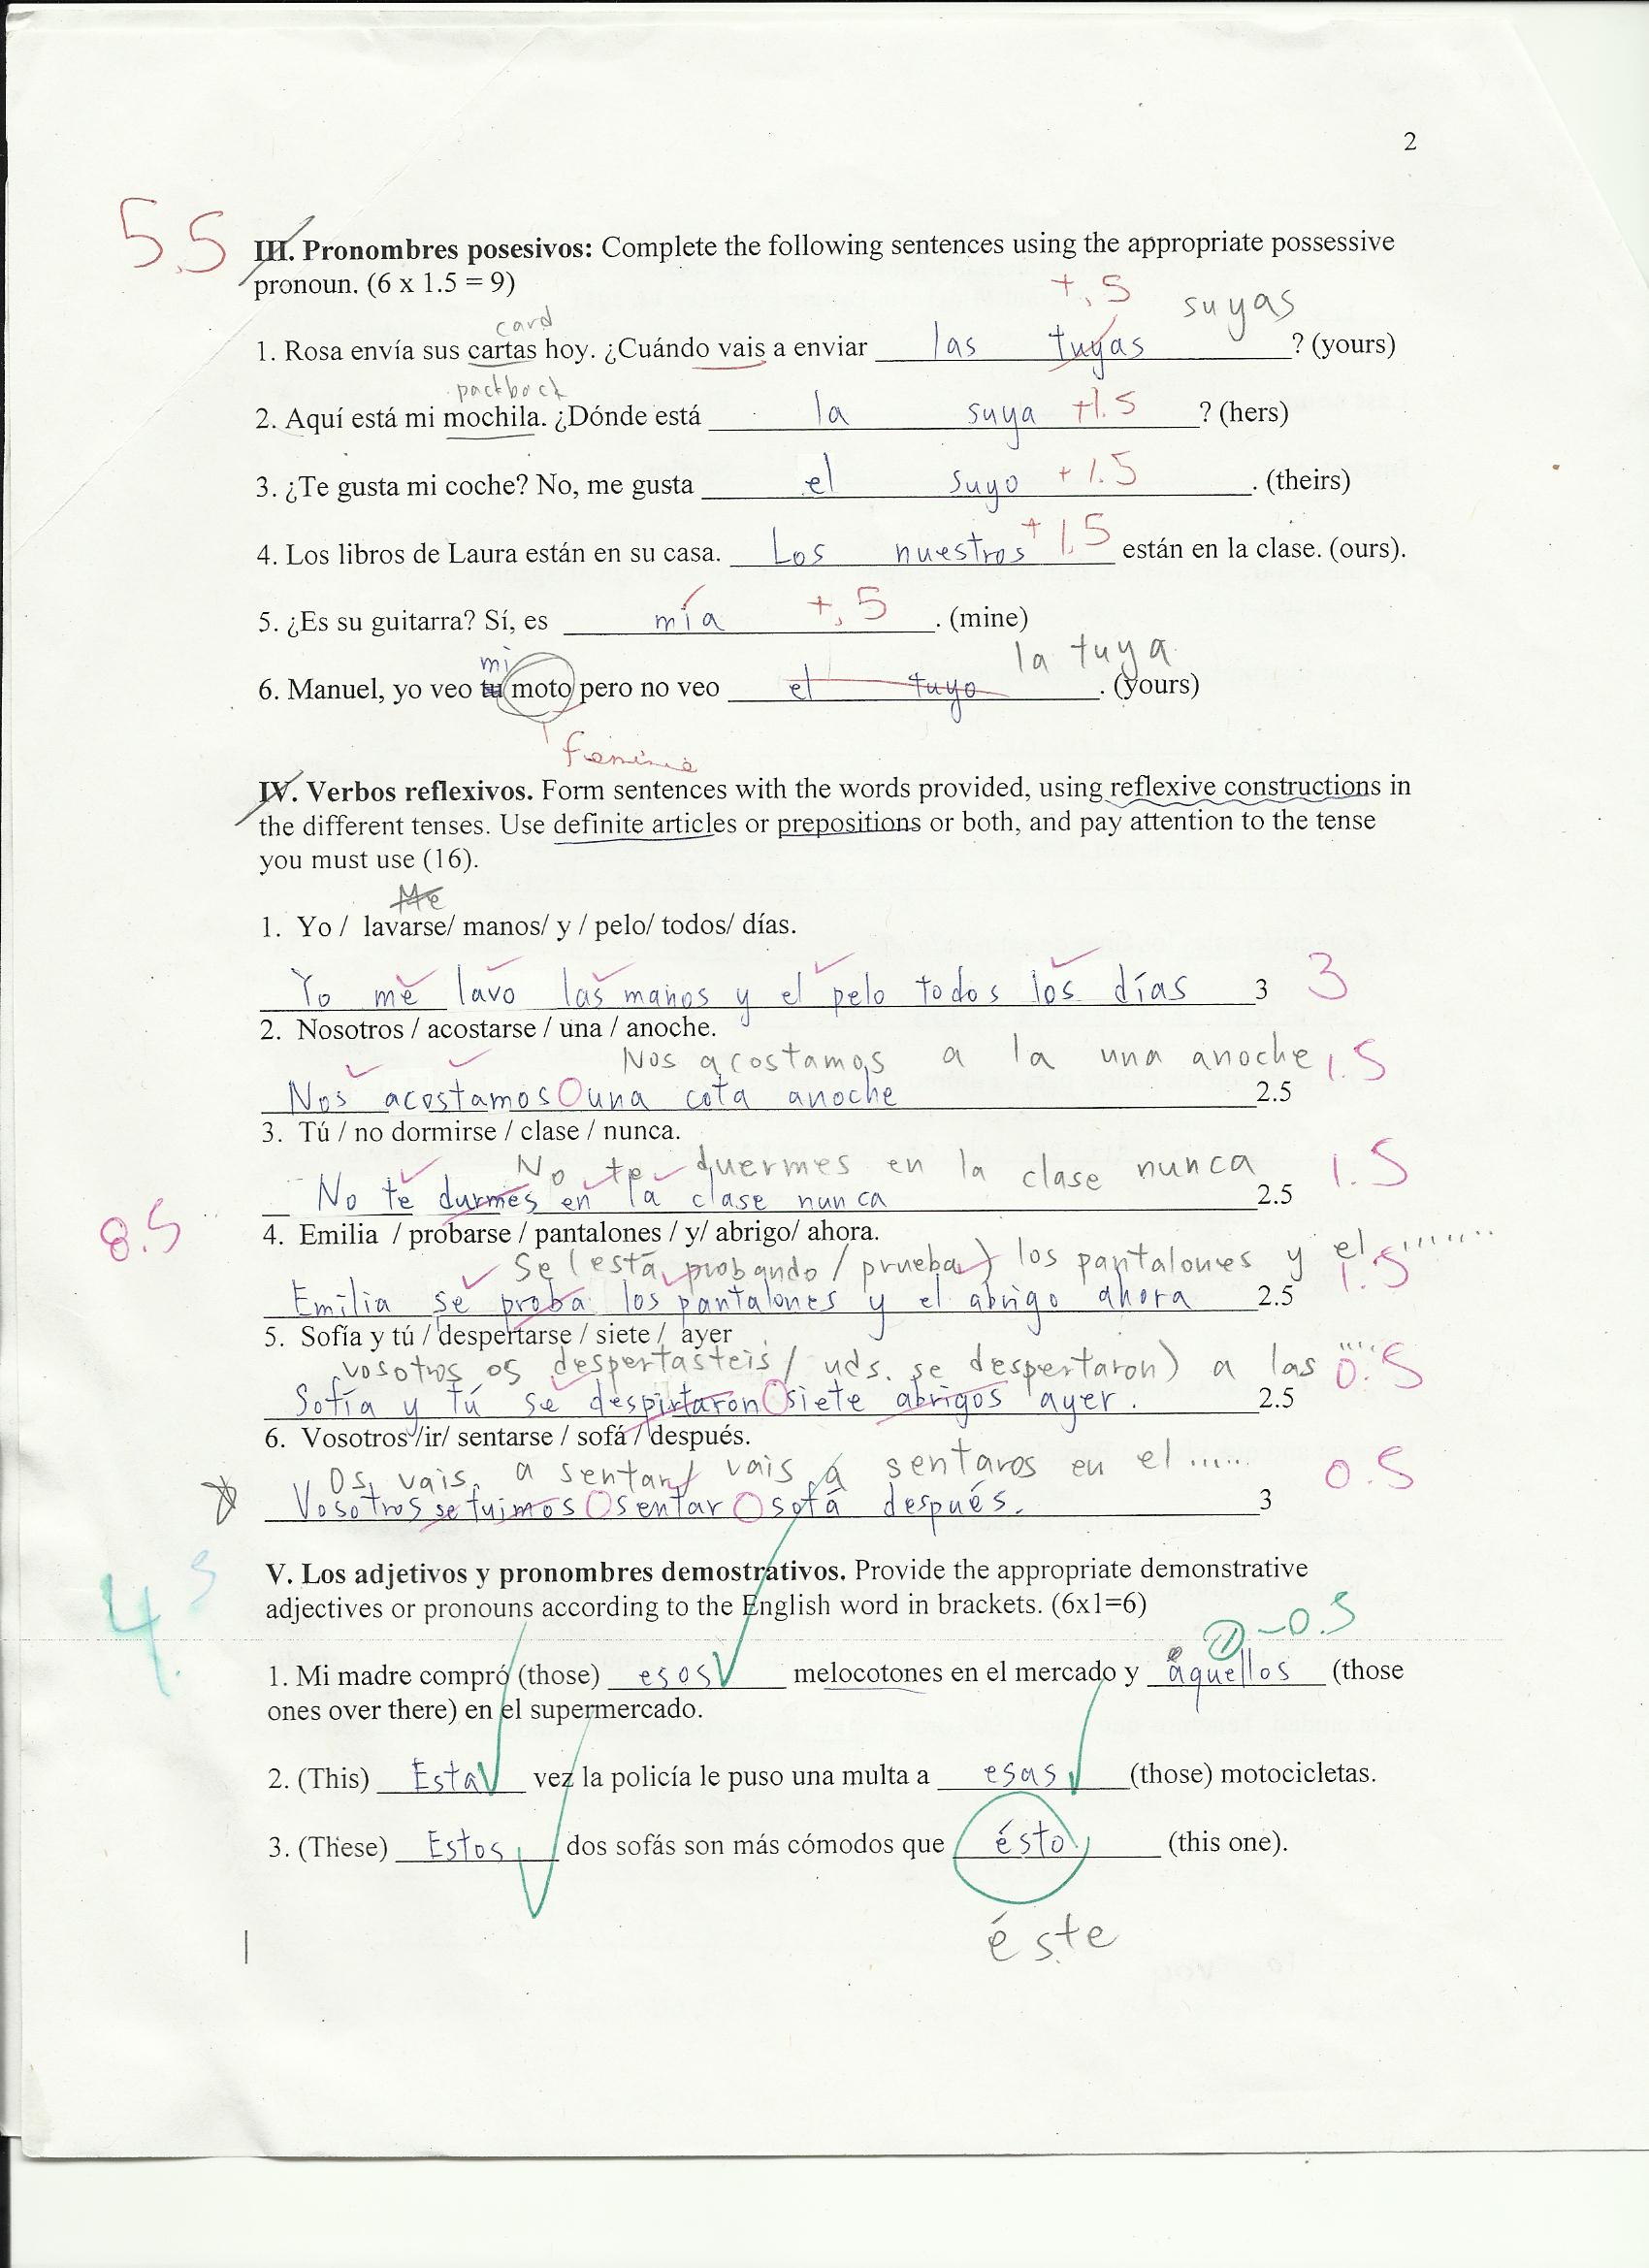 2
5.5
III. Pronombres posesivos: Complete the following sentences using the appropriate possessive
pronoun. (6 x 1.5 = 9)
+.5 suyas
card
1. Rosa envía sus cartas hoy. ¿Cuándo vais a enviar las tuyas ? (yours)
packbock
2. Aquí está mi mochila. ¿Dónde está la suya +1.5 ? (hers)
3. ¿Te gusta mi coche? No, me gusta el suyo +1.5 . (theirs)
4. Los libros de Laura están en su casa. Los nuestros +1.5 están en la clase. (ours).
5. ¿Es su guitarra? Sí, es mía +.5 . (mine)
mi la tuya
6. Manuel, yo veo tu moto pero no veo el tuyo . (yours)
IV. Verbos reflexivos. Form sentences with the words provided, using reflexive constructions in
the different tenses. Use definite articles or prepositions or both, and pay attention to the tense
you must use (16).
Me
1. Yo / lavarse/ manos/ y / pelo/ todos/ días.
Yo me lavo las manos y el pelo todos los días 3 3
2. Nosotros / acostarse / una / anoche.
Nos acostamos a la una anoche 1.5
Nos acostamos una cota anoche 2.5
3. Tú / no dormirse / clase / nunca.
No te duermes en la clase nunca 1.5
No te durmes en la clase nunca 2.5
8.5
4. Emilia / probarse / pantalones / y/ abrigo/ ahora.
Se (está probando / prueba) los pantalones y el ........ 1.5
Emilia se proba los pantalones y el abrigo ahora 2.5
5. Sofía y tú / despertarse / siete / ayer
vosotros os despertasteis / uds. se despertaron) a las .... 0.5
Sofía y tú se despirtaron siete abrigos ayer. 2.5
6. Vosotros /ir/ sentarse / sofá / después.
Os vais a sentar/ vais a sentaros en el ...... 0.5
Vosotros se fuimos sentar sofá después. 3
4.5
V. Los adjetivos y pronombres demostrativos. Provide the appropriate demonstrative
adjectives or pronouns according to the English word in brackets. (6x1=6)
-0.5
1. Mi madre compró (those) esos melocotones en el mercado y aquellos (those
ones over there) en el supermercado.
2. (This) Esta vez la policía le puso una multa a esas (those) motocicletas.
3. (These) Estos dos sofás son más cómodos que ésto (this one).
éste